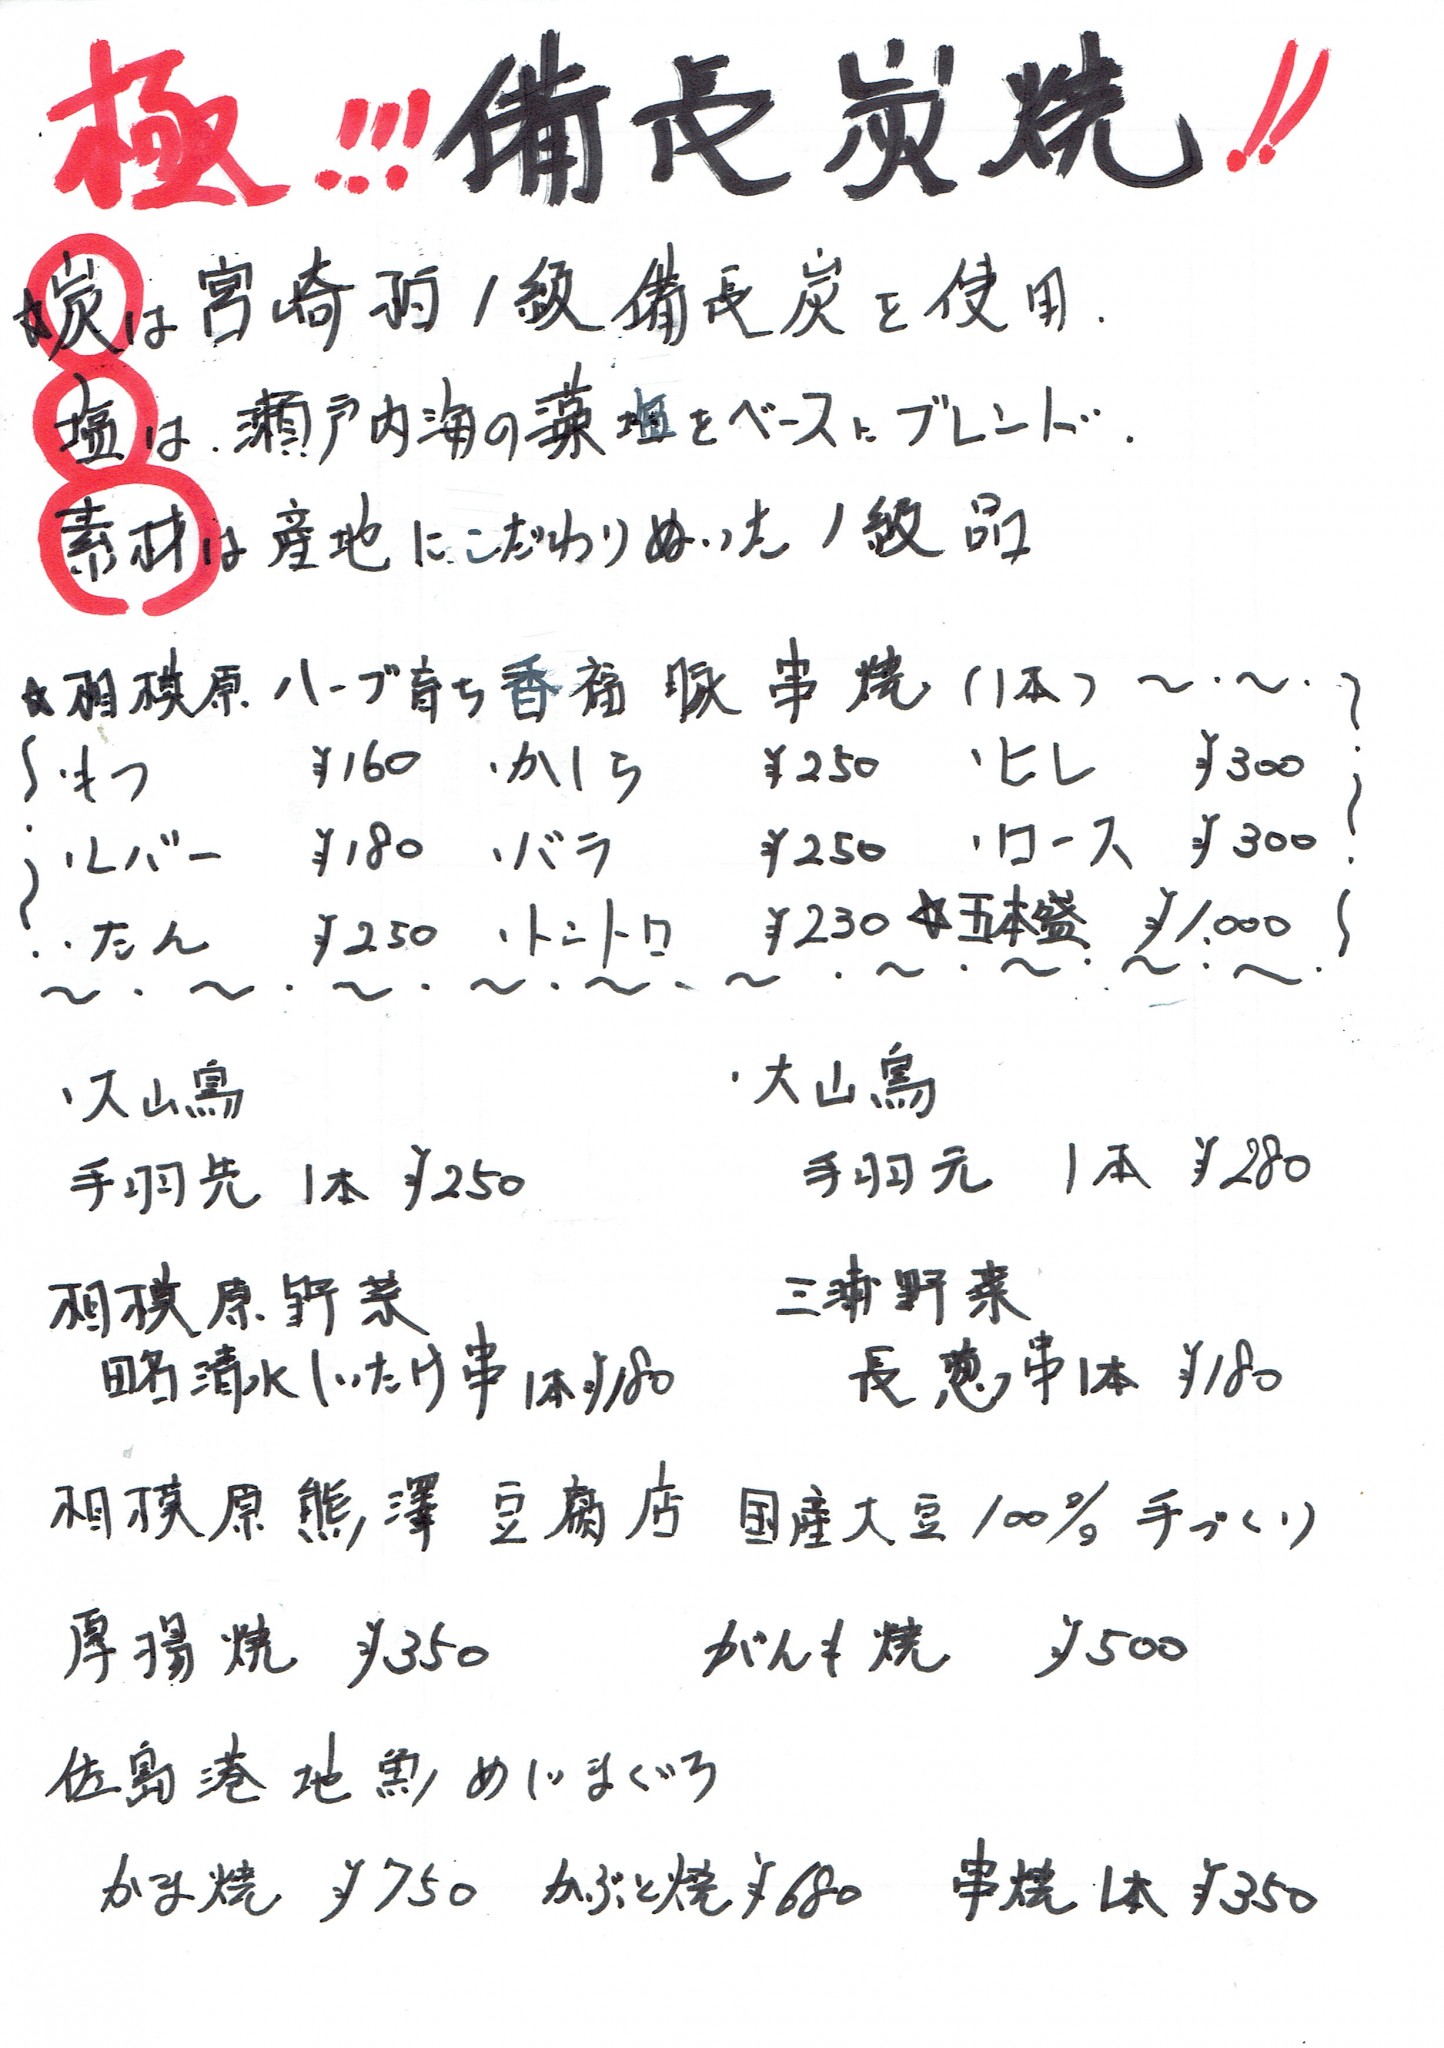 極!!!備長炭焼!!
☆炭は宮崎初1級備長炭を使用.
塩は.瀬戸内海の藻塩をベースにブレンド.
素材は産地にこだわりぬいた1級品
☆相模原ハーブ育ち香福豚串焼(1本)〜・〜・
・もつ ¥160 ・かしら ¥250 ・ヒレ ¥300
・レバー ¥180 ・バラ ¥250 ・ロース ¥300
・たん ¥250 ・トントロ ¥230 ☆五本盛 ¥1,000
・大山鳥 ・大山鳥
手羽先 1本 ¥250 手羽元 1本 ¥280
相模原野菜 三浦野菜
清水しいたけ串1本¥180 長葱串1本 ¥180
相模原熊澤豆腐店 国産大豆100% 手づくり
厚揚焼 ¥350 がんも焼 ¥500
佐島港地魚めじまぐろ
かま焼 ¥750 かぶと焼¥680 串焼1本¥350